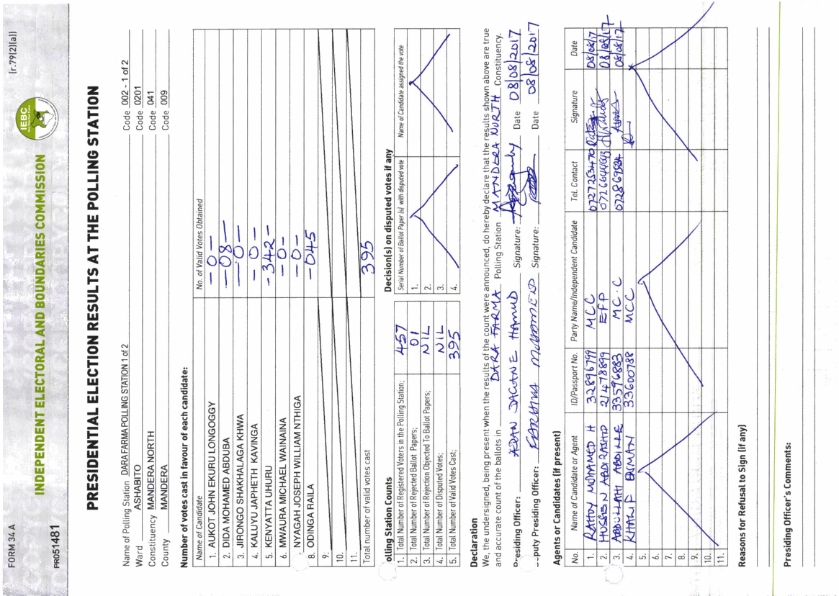 FORM 34 A
(r.79(2)(a))
IEBC
INDEPENDENT ELECTORAL AND BOUNDARIES COMMISSION
PR051481
PRESIDENTIAL ELECTION RESULTS AT THE POLLING STATION
Name of Polling Station DARA FARMA POLLING STATION 1 of 2 Code 002 - 1 of 2
Ward ASHABITO Code 0201
Constituency MANDERA NORTH Code 041
County MANDERA Code 009
Number of votes cast in favour of each candidate:
Name of Candidate No. of Valid Votes Obtained
1. AUKOT JOHN EKURU LONGOGGY -0-
2. DIDA MOHAMED ABDUBA -08-
3. JIRONGO SHAKHALAGA KHWA -0-
4. KALUYU JAPHETH KAVINGA -0-
5. KENYATTA UHURU -342-
6. MWAURA MICHAEL WAINAINA -0-
NYAGAH JOSEPH WILLIAM NTHIGA -0-
8. ODINGA RAILA -045
9.
10.
11.
Total number of valid votes cast 395
olling Station Counts
1. Total Number of Registered Voters in the Polling Station; 457
2. Total Number of Rejected Ballot Papers; 01
3. Total Number of Rejection Objected To Ballot Papers; NIL
4. Total Number of Disputed Votes; NIL
5. Total Number of Valid Votes Cast; 395
Decision(s) on disputed votes if any
Serial Number of Ballot Paper (s) with disputed vote Name of Candidate assigned the vote
1.
2.
3.
4.
Declaration
We, the undersigned, being present when the results of the count were announced, do hereby declare that the results shown above are true
and accurate count of the ballots in DARA FARMA Polling Station MANDERA NORTH Constituency.
residing Officer: ADAN DAGANE HAMUD Signature: Date 08/08/2017
puty Presiding Officer: FARHIYA MOHAMED Signature: Date 08/08/2017
Agents or Candidates (if present)
No. Name of Candidate or Agent ID/Passport No. Party Name/Independent Candidate Tel. Contact Signature Date
1. MOHAMED H 32896799 MCC 0727253470 08/08/17
2. HUSSEIN ABDIRASHID 21478899 EFP 08/08/17
3. ABDULLAHI ABDILLE 33596883 MC.C 08/08/17
4. 33600788 MCC
5.
6.
7.
8.
9.
10.
11.
Reasons for Refusal to Sign (if any)
Presiding Officer's Comments: